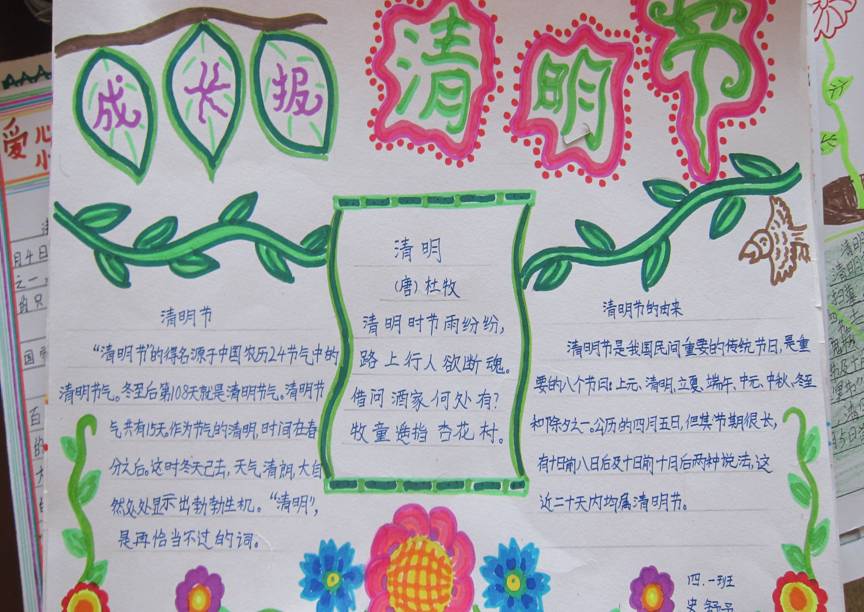 成长报
清明节
清明
(唐)杜牧
清明时节雨纷纷,
路上行人欲断魂。
借问酒家何处有?
牧童遥指杏花村。
清明节
“清明节”的得名源于中国农历24节气中的
清明节气。冬至后第108天就是清明节气。清明节
气共有15天。作为节气的清明,时间在春
分之后。这时冬天已去,天气清朗,大自
然处处显示出勃勃生机。“清明”,
是再恰当不过的词。
清明节的由来
清明节是我国民间重要的传统节日,是重
要的八个节日:上元、清明、立夏、端午、中元、中秋、冬至
和除夕之一。公历的四月五日,但其节期很长,
有十日前八日后及十日前十日后两种说法,这
近二十天内均属清明节。
四.一班
爱心